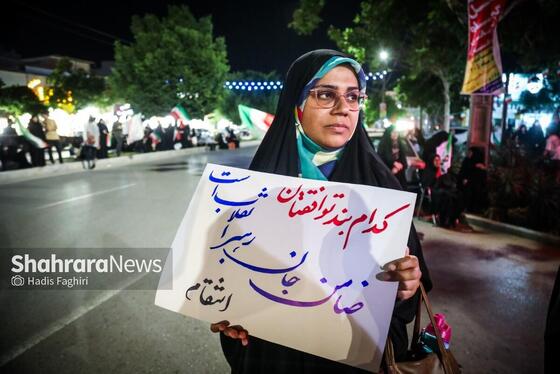 کدام بند توافقتان
ضامن جان
رهبر
انقلاب
شده است
انتقام
ShahraraNews
Hadis Faghiri